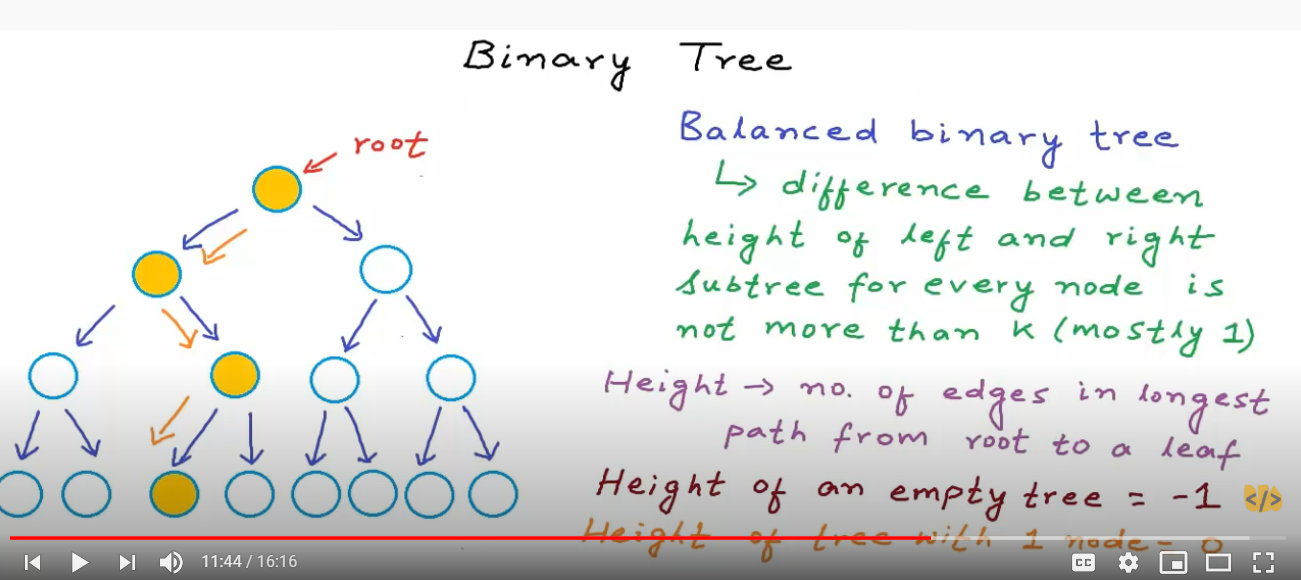 Binary Tree
root
Balanced binary tree
↳ difference between
height of left and right
subtree for every node is
not more than k (mostly 1)
Height → no. of edges in longest
path from root to a leaf
Height of an empty tree = -1
</>
Height of tree with 1 node = 0
11:44 / 16:16
CC